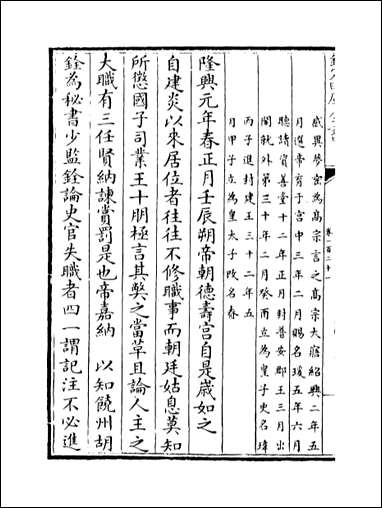 欽定四庫全書
卷一百二十一
感異夢密為高宗言之高宗大寤紹興二年五
月選帝育于宫中三年二月賜名瑗五年六月
聽讀資善堂十二年正月封普安郡王三月出
閤就外第三十年二月癸酉立為皇子更名瑋
丙子進封建王三十二年五
月甲子立為皇太子改名眘
隆興元年春正月壬辰朔帝朝德壽宫自是歲如之
自建炎以來居位者往往不修職事而朝廷姑息莫知
所懲國子司業王十朋極言其弊之當革且論人主之
大職有三任賢納諫賞罰是也帝嘉納　以知饒州胡
銓為秘書少監銓論史官失職者四一謂記注不必進